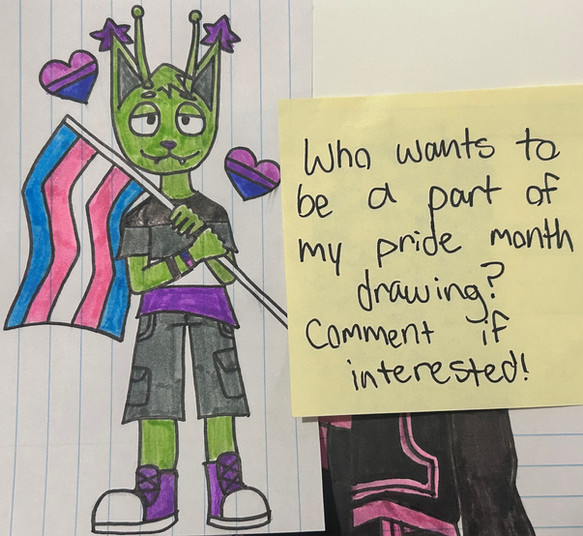 Who wants to
be a part of
my pride month
drawing?
Comment if
interested!